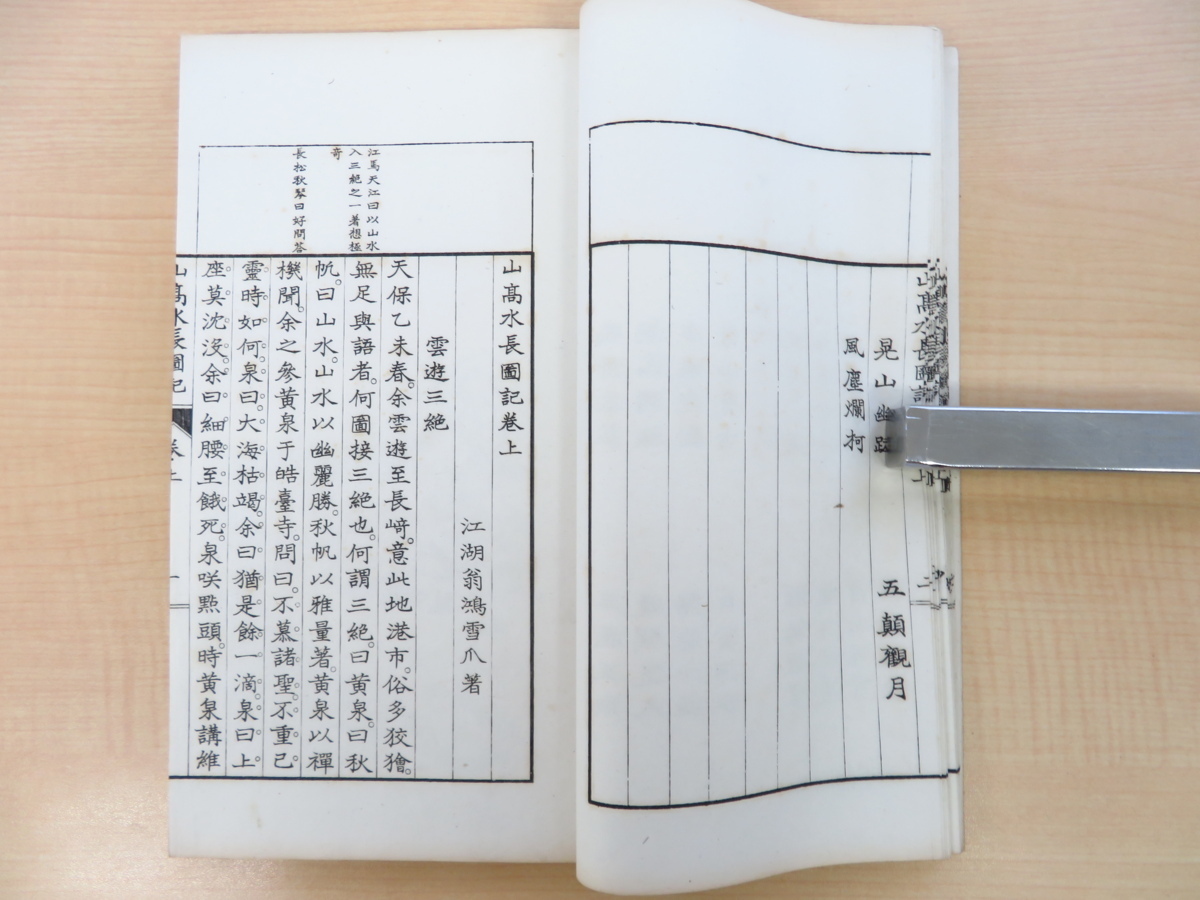 晃山幽蹤
五顛觀月
風塵爛柯
江馬天江曰以山水
入三絕之一著想極
奇
長松秋琴曰好問答
山高水長圖記卷上
江湖翁鴻雪爪著
雲遊三絕
天保乙未春。余雲遊至長﨑。意此地港市。俗多狡獪。
無足與語者。何圖接三絕也。何謂三絕。曰黃泉。曰秋
帆。曰山水。山水以幽麗勝。秋帆以雅量著。黃泉以禪
機聞。余之參黃泉于皓臺寺。問曰。不慕諸聖。不重己
靈。時如何。泉曰。大海枯竭。余曰猶是餘一滴。泉曰上
座莫沈沒。余曰細腰至餓死。泉咲點頭。時黃泉講維
山高水長圖記 卷上 一